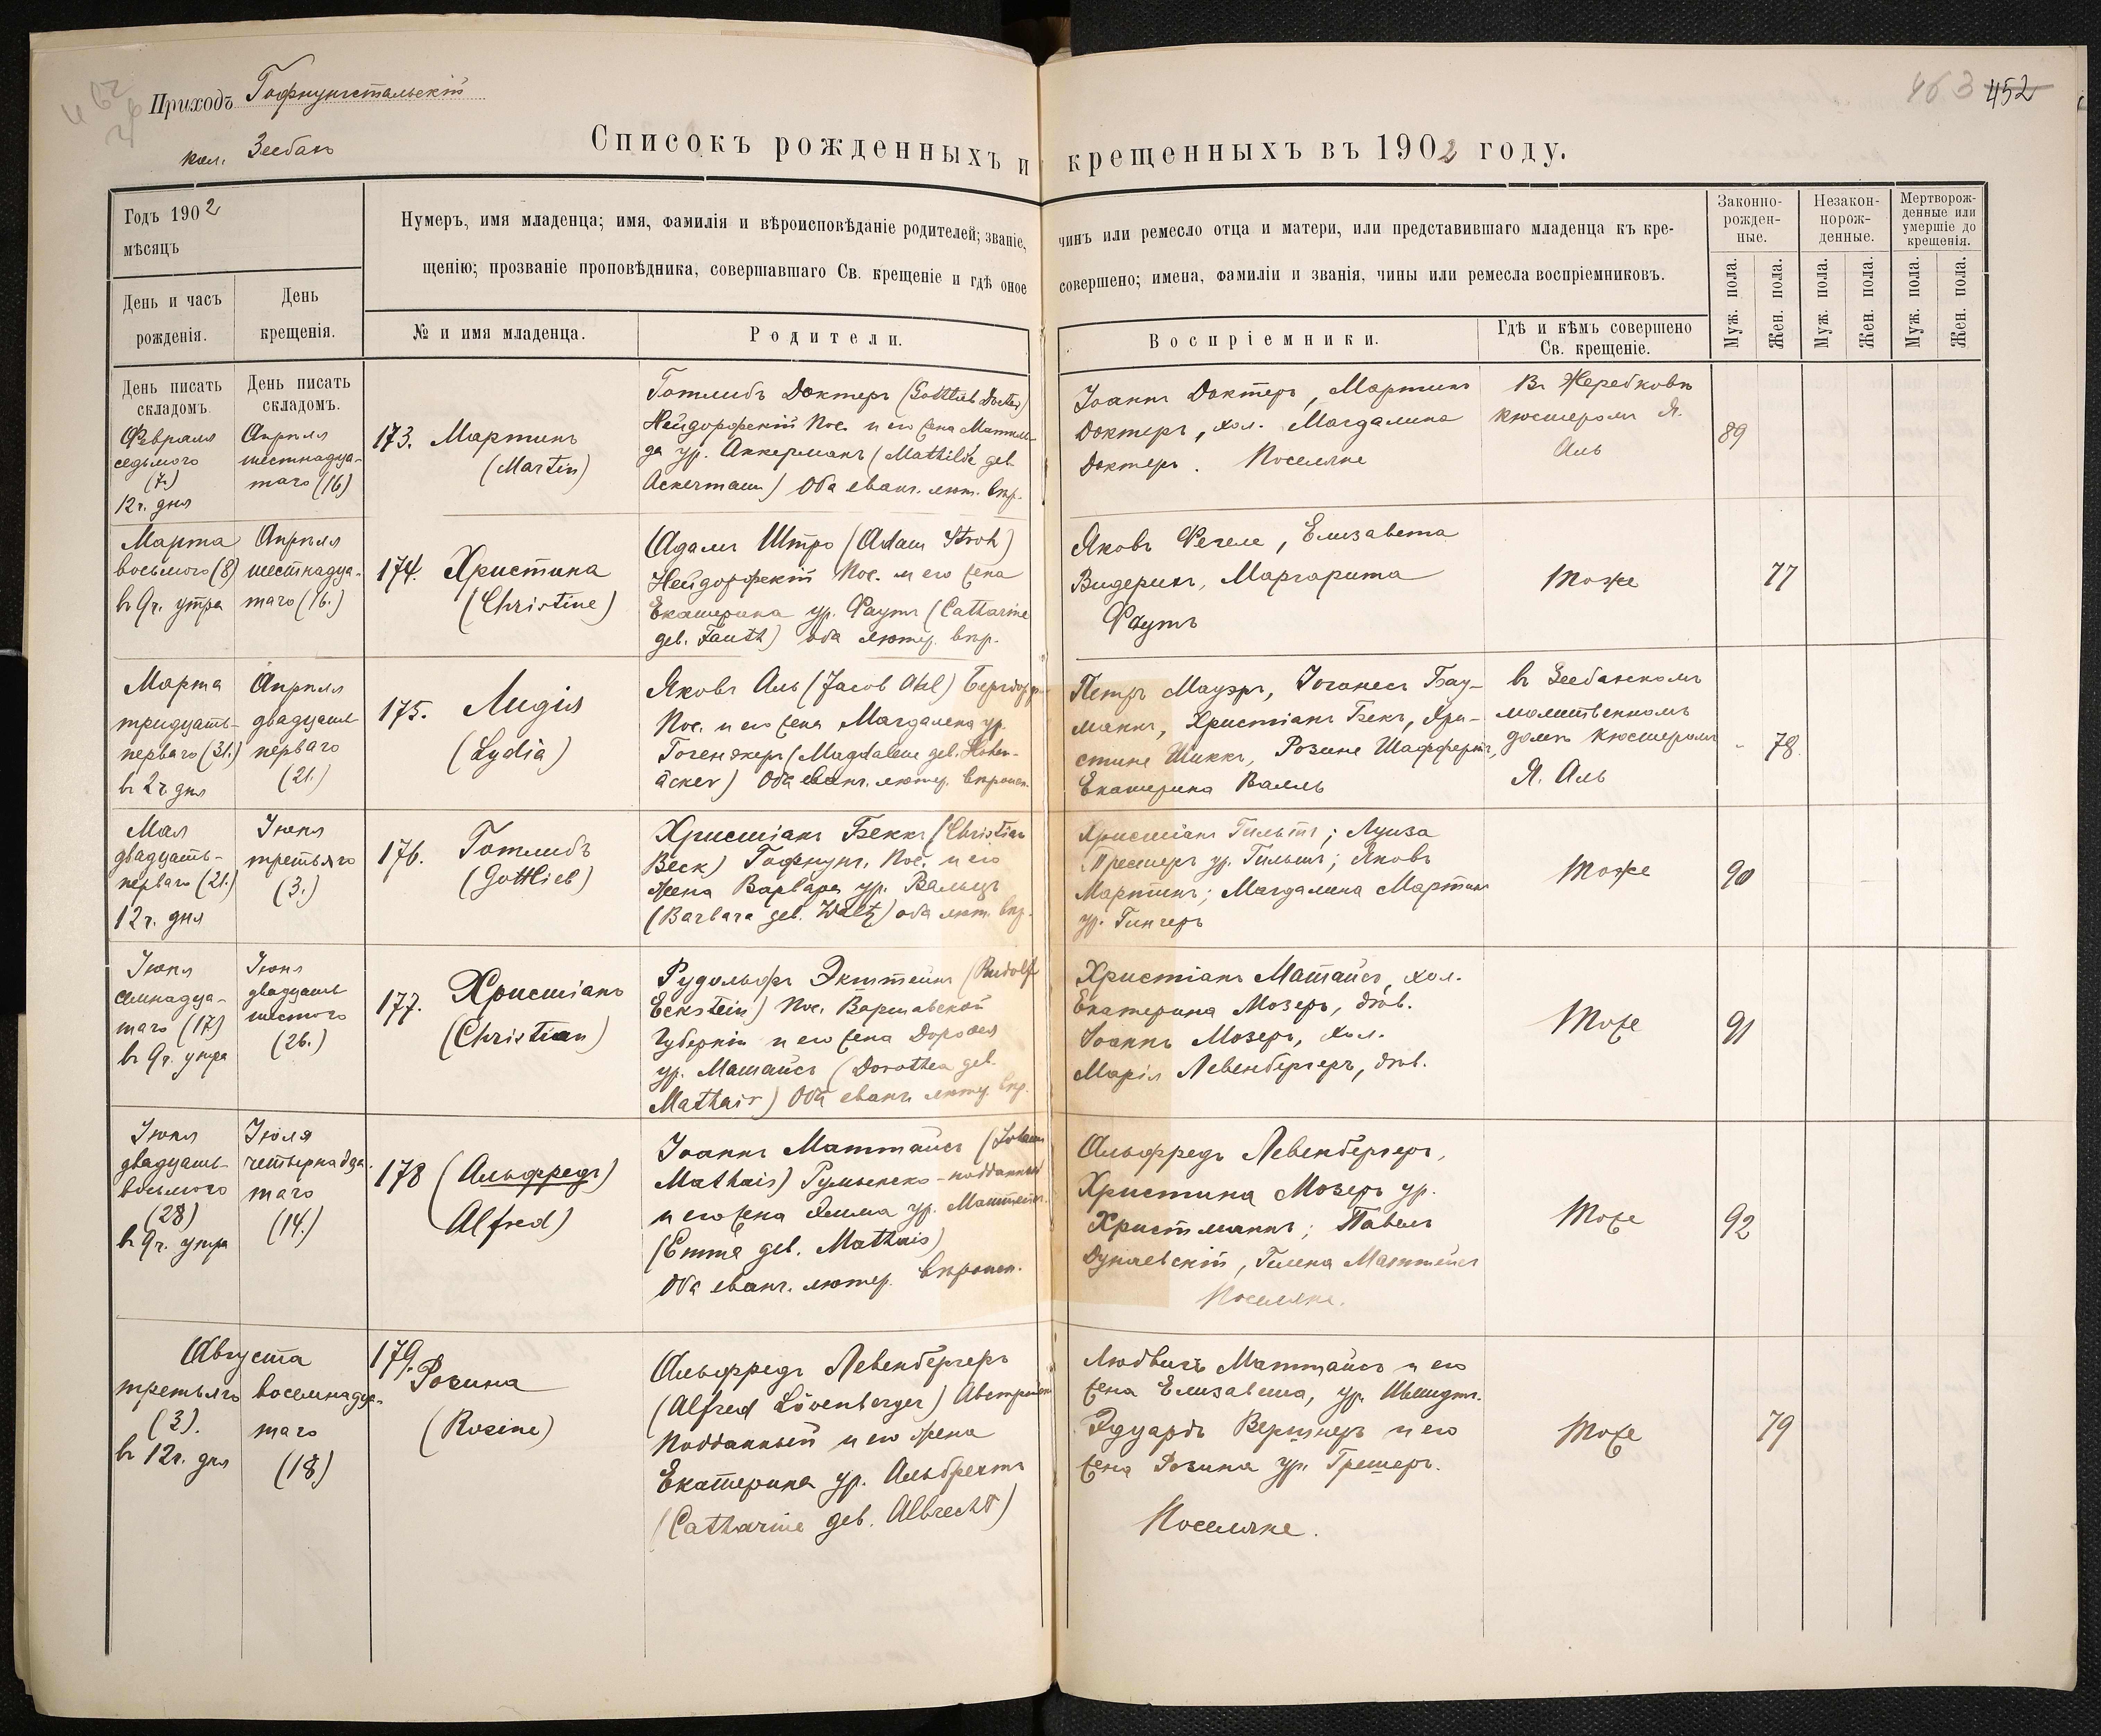 Приходъ Гофнунгстальскій
463 452
кол. Зеебахъ
Списокъ рожденныхъ и крещенныхъ въ 1902 году.
Годъ 1902
мѣсяцъ
День и часъ рожденія.
День крещенія.
Нумеръ, имя младенца; имя, фамилія и вѣроисповѣданіе родителей; званіе, чинъ или ремесло отца и матери, или представившаго младенца къ кре-
щенію; прозваніе проповѣдника, совершавшаго Св. крещеніе и гдѣ оное совершено; имена, фамиліи и званія, чины или ремесла воспріемниковъ.
№ и имя младенца.
Родители.
Воспріемники.
Гдѣ и кѣмъ совершено
Св. крещеніе.
Законно-
рожден-
ные.
Незакон-
норож-
денные.
Мертворож-
денные или
умершіе до
крещенія.
Муж. пола.
Жен. пола.
Муж. пола.
Жен. пола.
Муж. пола.
Жен. пола.
День писать
складомъ.
День писать
складомъ.
Февраля
седьмого
(7.)
12 ч. дня
Апрѣля
шестнадца-
таго (16)
173. Мартинъ
(Martin)
Готлибъ Доктеръ (Gottlieb Docter)
Нейдорфскій пос. и его жена Матиль-
да ур. Аккерманъ (Mathilde geb.
Ackermann) Оба еванг. лют. вѣр.
Іоаннъ Доктеръ, Мартинъ
Доктеръ, хол. Магдалина
Доктеръ. Поселяне
Въ Жеребковѣ
кюстеромъ Я.
Аль
89
Марта
восьмого (8)
въ 9 ч. утра
Апрѣля
шестнадца-
таго (16.)
174. Христина
(Christine)
Адамъ Штро (Adam Stroh)
Нейдорфскій пос. и его жена
Екатерина ур. Фаутъ (Catharine
geb. Fauth) оба лютер. вѣр.
Яковъ Фегеле, Елизавета
Видерихъ, Маргарита
Фаутъ
Тоже
77
Марта
тридцать-
перваго (31.)
въ 2 ч. дня
Апрѣля
двадцать
перваго
(21.)
175. Лидія
(Lydia)
Яковъ Аль (Jacob Ahl) Бергдорф.
пос. и его жена Магдалена ур.
Гогенэкеръ (Magdalene geb. Hohen-
acker) Оба еванг. лютер. вѣроисп.
Петръ Мауэръ, Іоганесъ Бау-
манъ, Христіанъ Бекъ, Хри-
стине Шикъ, Розине Шаффертъ,
Екатерина Валль
въ Зеебахскомъ
молитвенномъ
домѣ кюстеромъ
Я. Аль
- 78.
Мая
двадцать-
перваго (21.)
12 ч. дня
Іюня
третьяго
(3.)
176. Готлибъ
(Gottlieb)
Христіанъ Беккъ (Christian
Beck) Гофнунг. пос. и его
жена Варвара ур. Вальцъ
(Barbara geb. Waltz) оба лют. вѣр.
Христіанъ Гильтъ; Луиза
ур. Гильтъ; Яковъ
Мартинъ; Магдалина Мартинъ
ур.
Тоже
90
Іюня
семнадца-
таго (17)
въ 9 ч. утра
Іюня
двадцать
шестого
(26.)
177. Христіанъ
(Christian)
Рудольфъ Экштейнъ (Rudolf
Eckstein) пос. Варшавской
Губерніи и его жена Доротея
ур. Матаисъ (Dorothea geb.
Mathais) Оба еванг. лютер. вѣр.
Христіанъ Матаисъ, хол.
Екатерина Мозеръ, дѣв.
Іоаннъ Мозеръ, хол.
Марія Левенбергеръ, дѣв.
Тоже
91
Іюня
двадцать-
восьмого
(28)
въ 9 ч. утра
Іюля
четырнадца-
таго
(14.)
178 (Альфредъ)
Alfred)
Іоаннъ Маттаисъ (Johann
Mathais) Румынско-подданный
и его жена Эмма ур. Маттаисъ
(Emma geb. Mathais)
Оба еванг. лютер. вѣроисп.
Альфредъ Левенбергеръ,
Христина Мозеръ ур.
Христманъ; Павелъ
Дунаевскій, Гелена Маттаисъ
Поселяне.
Тоже
92
Августа
третьяго
(3).
въ 12 ч. дня
восемнадца-
таго
(18)
179. Розина
(Rosine)
Альфредъ Левенбергеръ
(Alfred Lövenberger) Австрійскій
подданный и его жена
Екатерина ур. Альбрехтъ
(Catharine geb. Albrecht)
Людвигъ Маттаисъ и его
жена Елизавета, ур. Шмидтъ.
Эдуардъ Вершнеръ и его
жена Розина ур. Грешеръ.
Поселяне.
Тоже
79